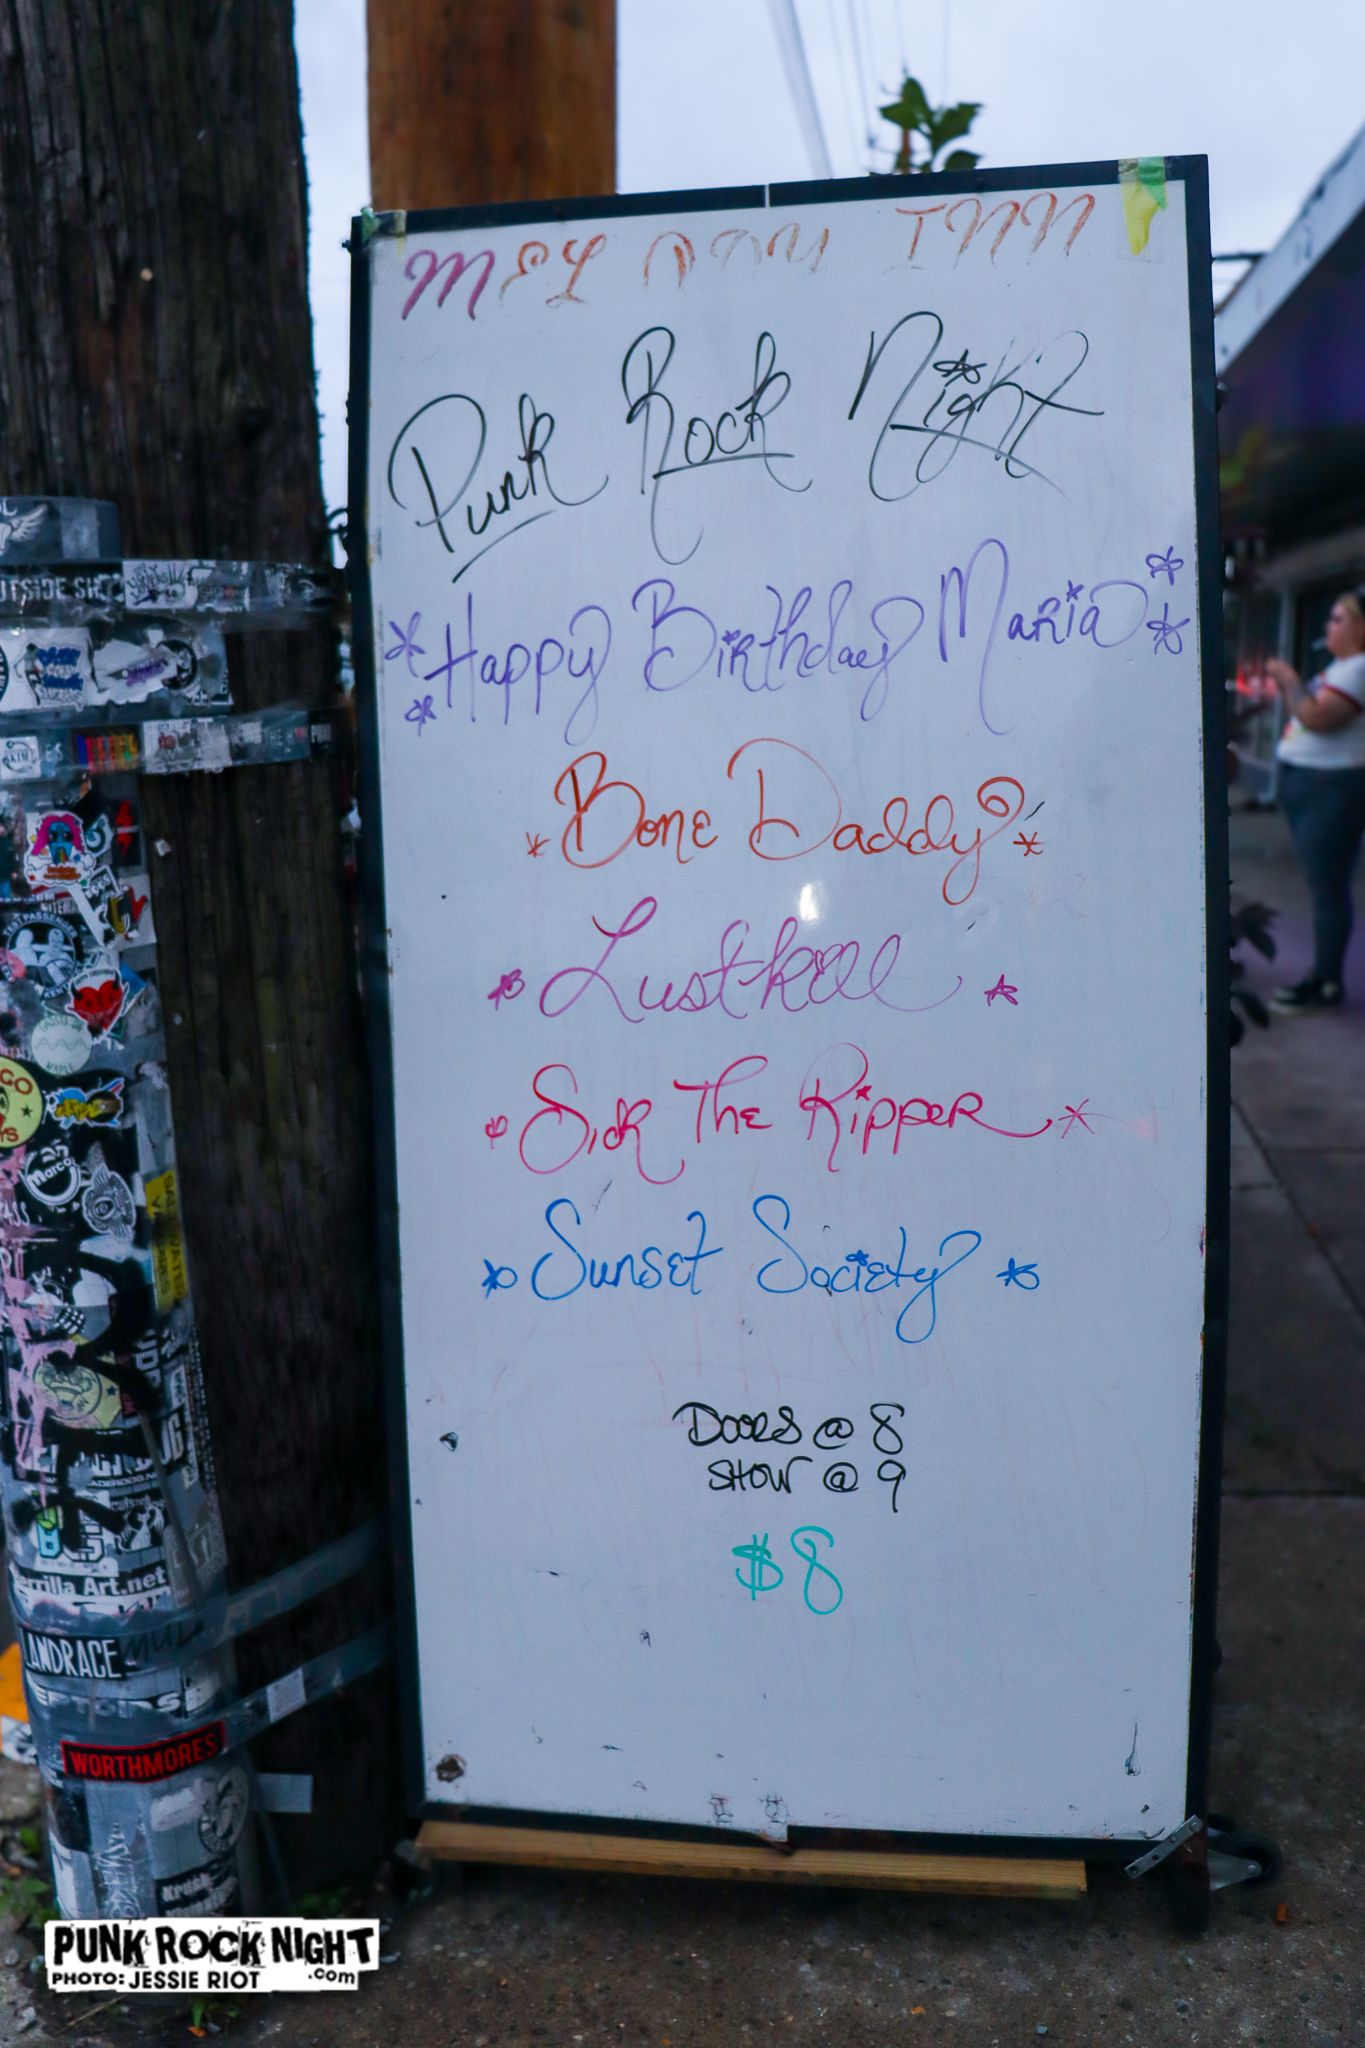 MELODY INN
Punk Rock Night
Happy Birthday Maria
Bone Daddy
Lustkill
Sick The Ripper
Sunset Society
DOORS @ 8
SHOW @ 9
$8
Marco
Art.net
LANDRACE
WORTHMORES
PUNK ROCK NIGHT
.com
PHOTO: JESSIE RIOT